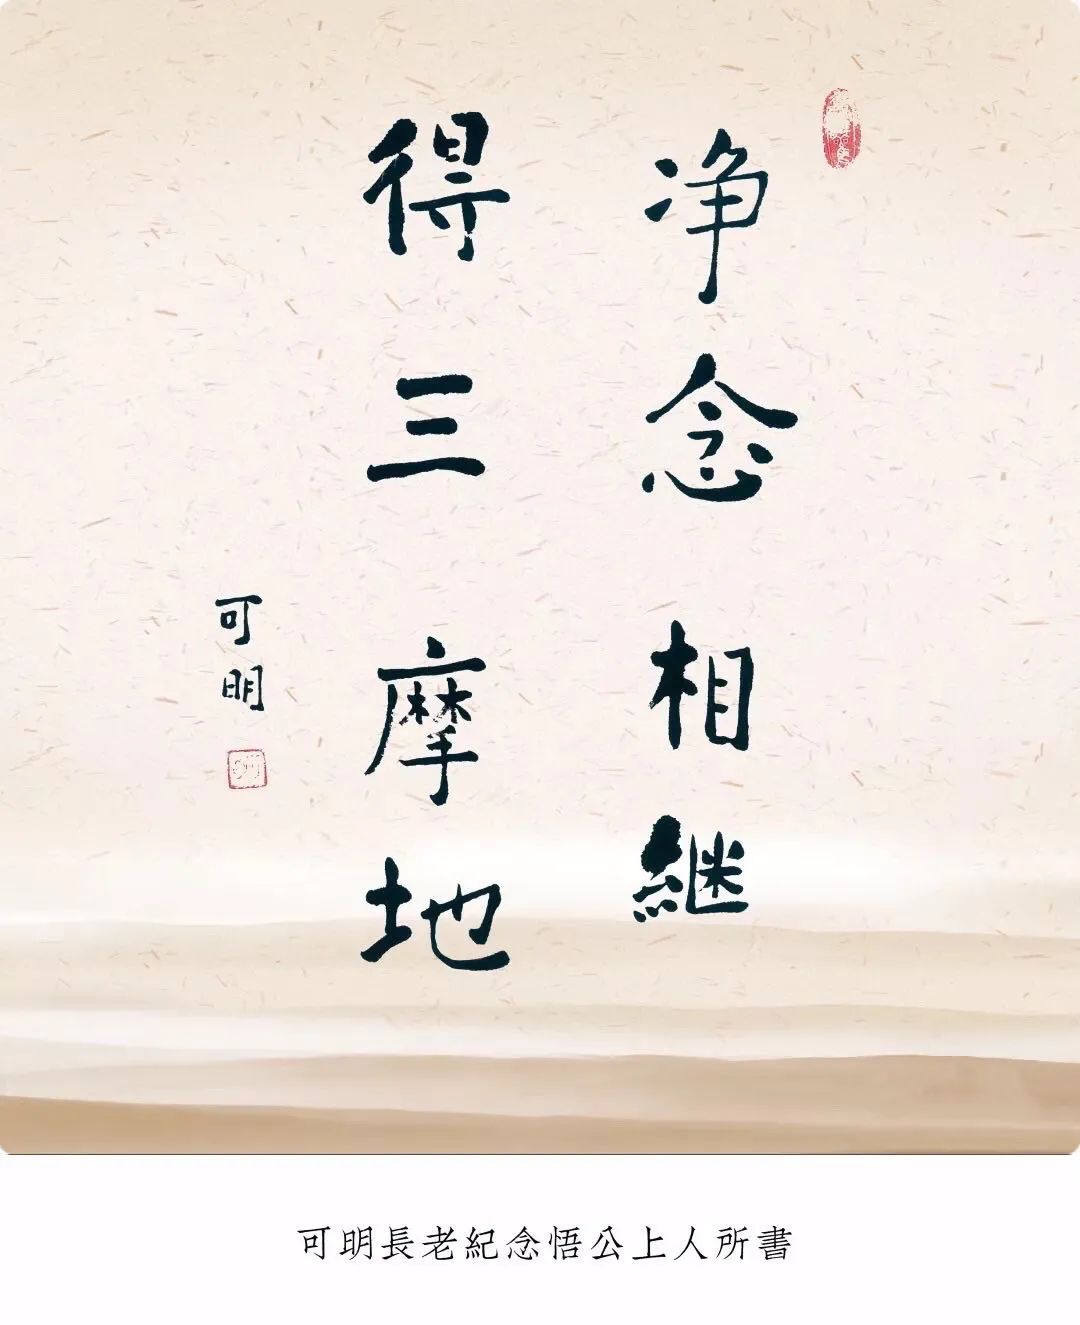 净念相継
得三摩地
可明
可明長老紀念悟公上人所書